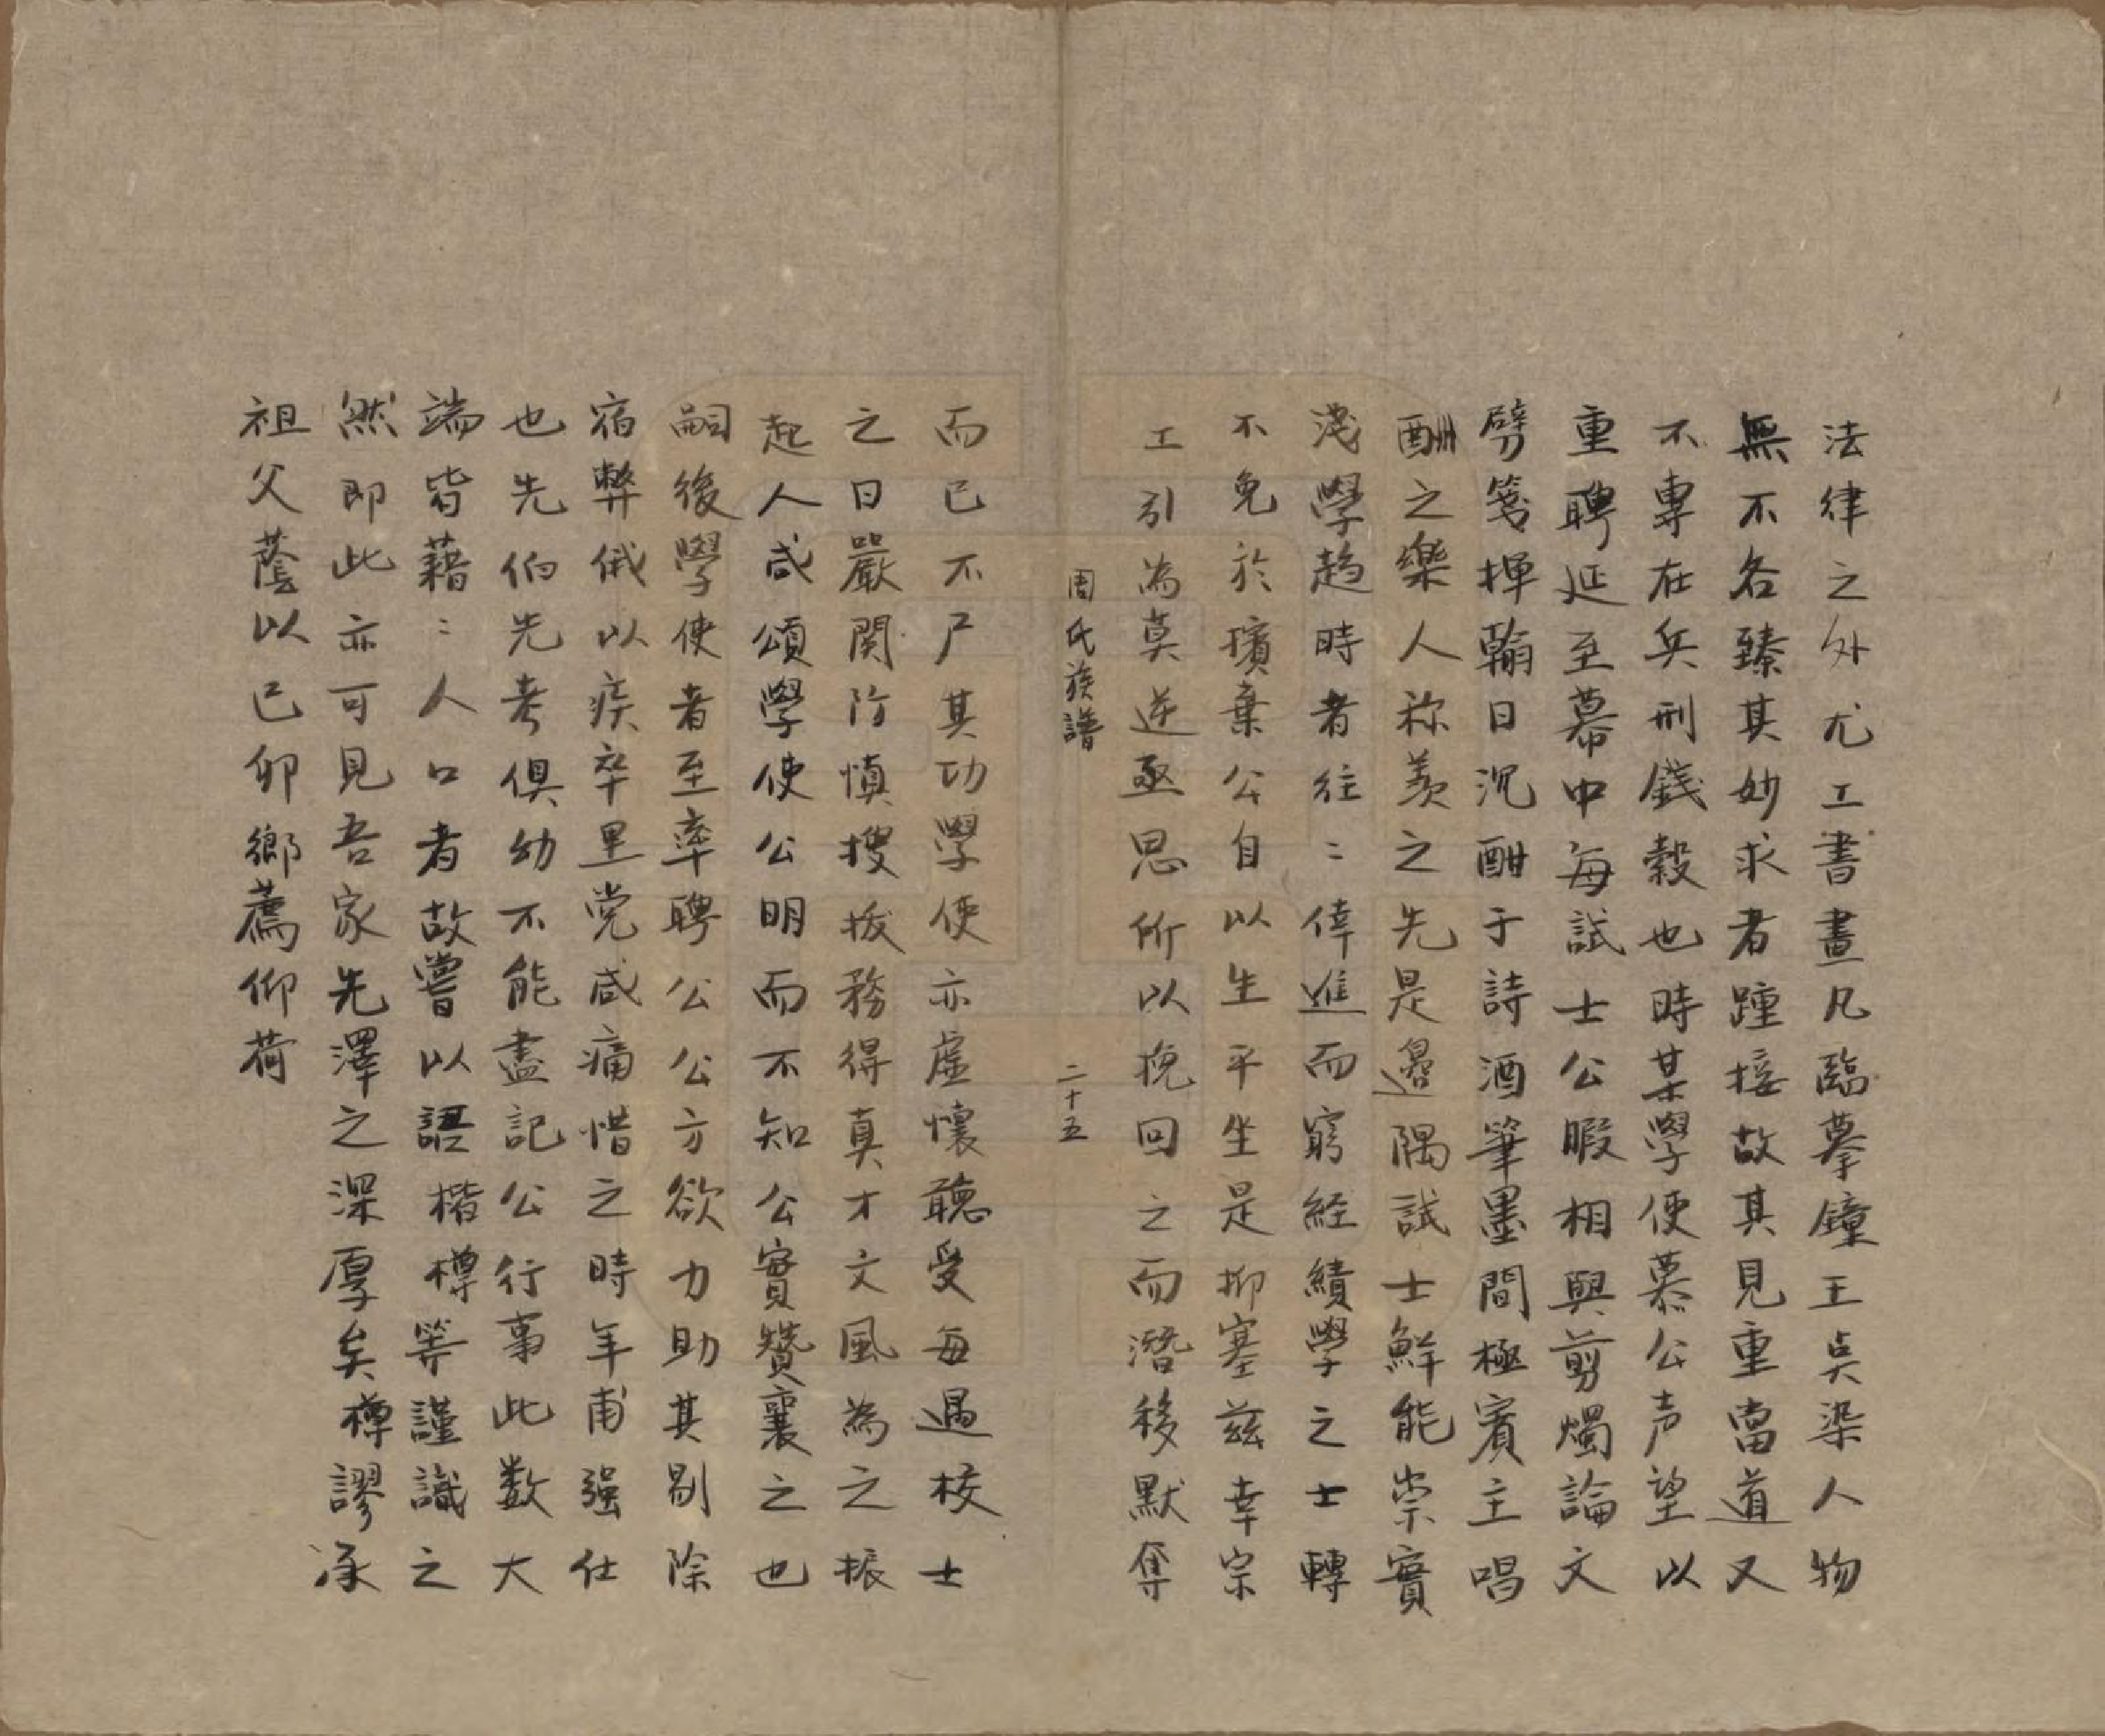 法律之外尤工書畫凡臨摹鐘王吳染人物
無不各臻其妙求者踵接故其見重當道又
不專在兵刑錢穀也時某學使慕公声望以
重聘延至幕中每試士公暇相與剪燭論文
劈箋揮翰日沉酣于詩酒筆墨間極賓主唱
酬之樂人称羡之先是邉隅試士鮮能崇實
淺學趋時者往〻倖進而窮経績學之士轉
不免於擯棄公自以生平坐是抑塞兹幸宗
工引為莫逆亟思所以挽回之而潛移默奪
周氏族譜 二十五
而已不尸其功學使亦虛懷聽受每遇校士
之日嚴関防慎搜拔務得真才文風為之振
起人咸頌學使公明而不知公實贊襄之也
嗣後學使者至率聘公公方欲力助其剔除
宿弊俄以疾卒里党咸痛惜之時年甫强仕
也先伯先考俱幼不能盡記公行事此数大
端皆藉〻人口者故嘗以語楷樽等謹識之
然即此亦可見吾家先澤之深厚矣樽謬承
祖父蔭以己卯鄉薦仰荷